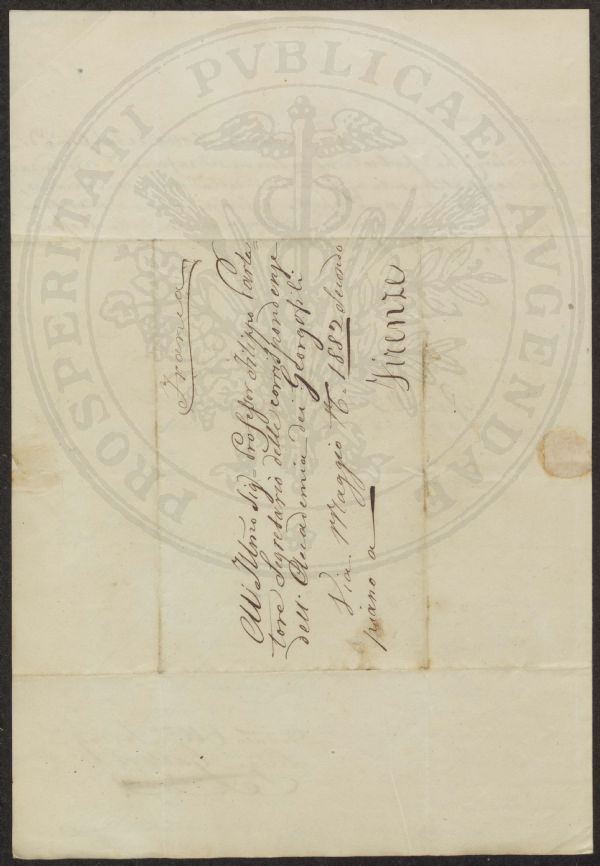 PROSPERITATI PVBLICAE AVGENDAE
Franca
All' Illmo Sig. Professor Filippo Parla=
tore Segretario delle corrispondenze
dell. Accademia dei Georgofili
Via Maggio N. 1882 secondo
piano a
Firenze